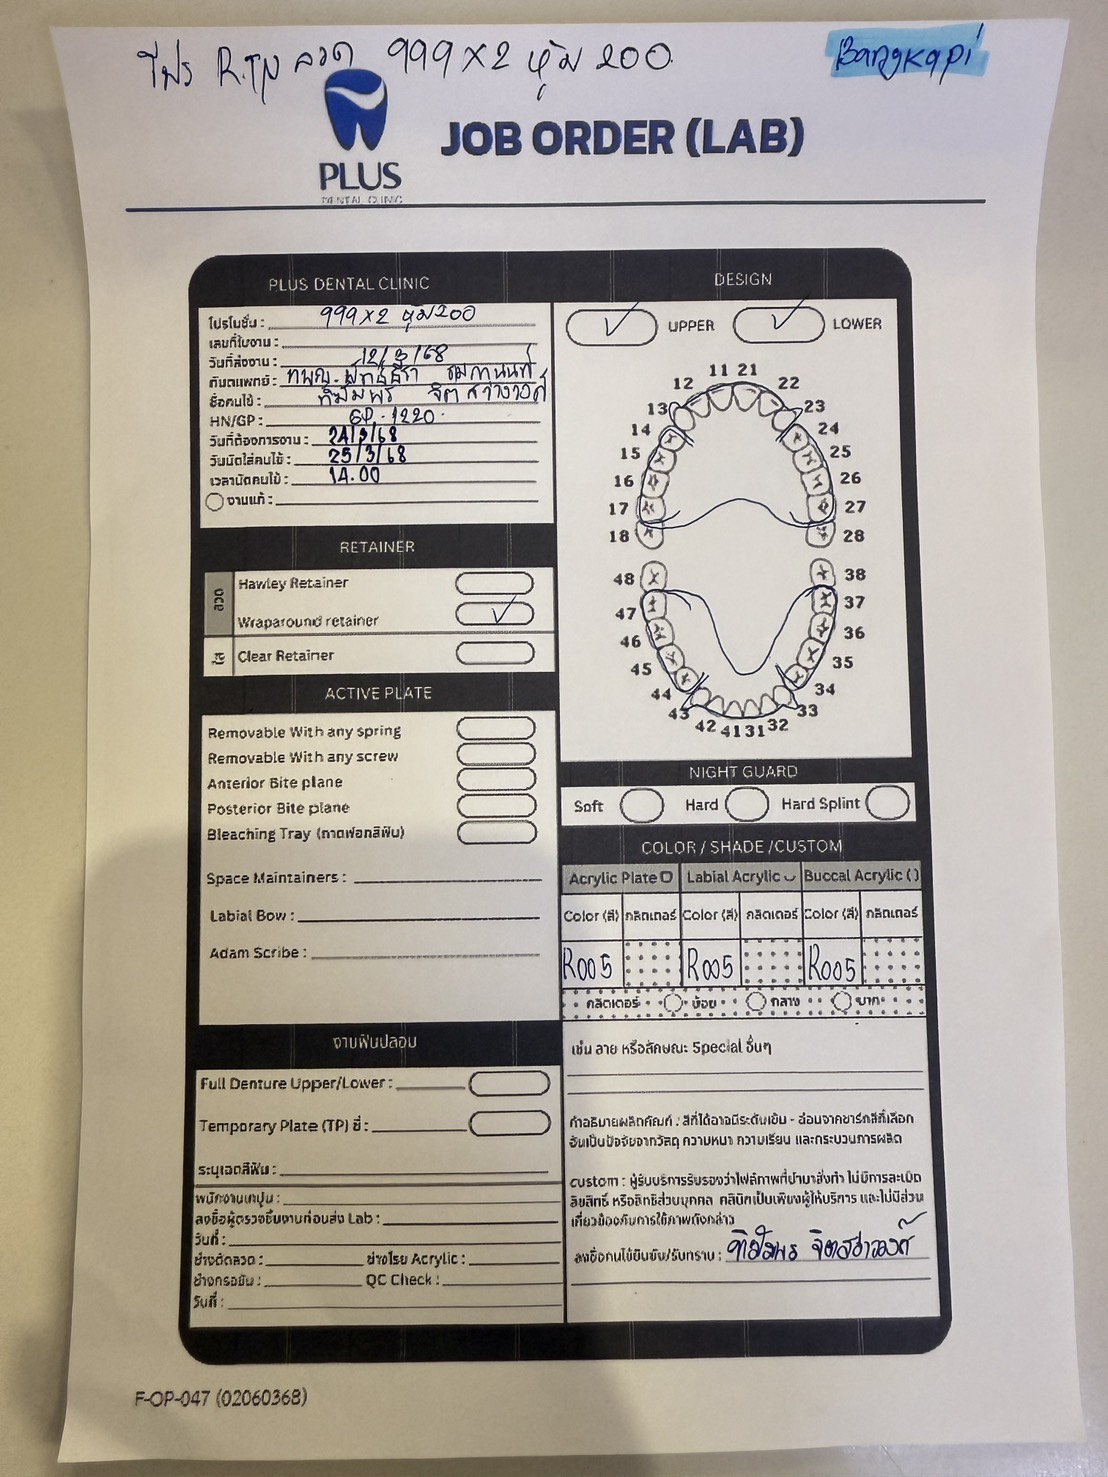 โปร R.T.N ลวด 999 x 2 หุ้ม 200
Bangkapi
JOB ORDER (LAB)
PLUS
DENTAL CLINIC
PLUS DENTAL CLINIC
โปรโมชั่น : 999 x 2 หุ้ม 200
เลขที่ใบงาน :
วันที่ส่งงาน : 12/3/68
ทันตแพทย์ : ทพญ.
ชื่อคนไข้ :
HN/GP : GP. 1220
วันที่ต้องการงาน : 24/3/68
วันนัดใส่คนไข้ : 25/3/68
เวลานัดคนไข้ : 14.00
งานแก้ :
RETAINER
ลวด
Hawley Retainer
Wraparound retainer
ใส
Clear Retainer
ACTIVE PLATE
Removable With any spring
Removable With any screw
Anterior Bite plane
Posterior Bite plane
Bleaching Tray (ถาดฟอกสีฟัน)
Space Maintainers :
Labial Bow :
Adam Scribe :
งานฟันปลอม
Full Denture Upper/Lower :
Temporary Plate (TP) ซี่ :
ระบุเฉดสีฟัน :
พนักงานเทปูน :
ลงชื่อผู้ตรวจชิ้นงานก่อนส่ง Lab :
วันที่ :
ช่างดัดลวด : ช่างโรย Acrylic :
ช่างกรอขัด : QC Check :
วันที่ :
DESIGN
UPPER LOWER
11 21
12 22
13 23
14 24
15 25
16 26
17 27
18 28
48 38
47 37
46 36
45 35
44 34
43 33
42 41 31 32
NIGHT GUARD
Soft Hard Hard Splint
COLOR / SHADE /CUSTOM
Acrylic Plate Labial Acrylic Buccal Acrylic ( )
Color (สี) กลิตเตอร์ Color (สี) กลิตเตอร์ Color (สี) กลิตเตอร์
R005 R005 R005
กลิตเตอร์ น้อย กลาง มาก
เช่น ลาย หรือลักษณะ Special อื่นๆ
คำอธิบายผลิตภัณฑ์ : สีที่ได้อาจมีระดับเข้ม - อ่อนจากชาร์ทสีที่เลือก
อันเป็นปัจจัยจากวัสดุ ความหนา ความเรียบ และกระบวนการผลิต
custom : ผู้รับบริการรับรองว่าไฟล์ภาพที่นำมาสั่งทำ ไม่มีการละเมิด
ลิขสิทธิ์ หรือสิทธิส่วนบุคคล คลินิกเป็นเพียงผู้ให้บริการ และไม่มีส่วน
เกี่ยวข้องกับการใช้ภาพดังกล่าว
ลงชื่อคนไข้ยืนยัน/รับทราบ :
F-OP-047 (02060368)